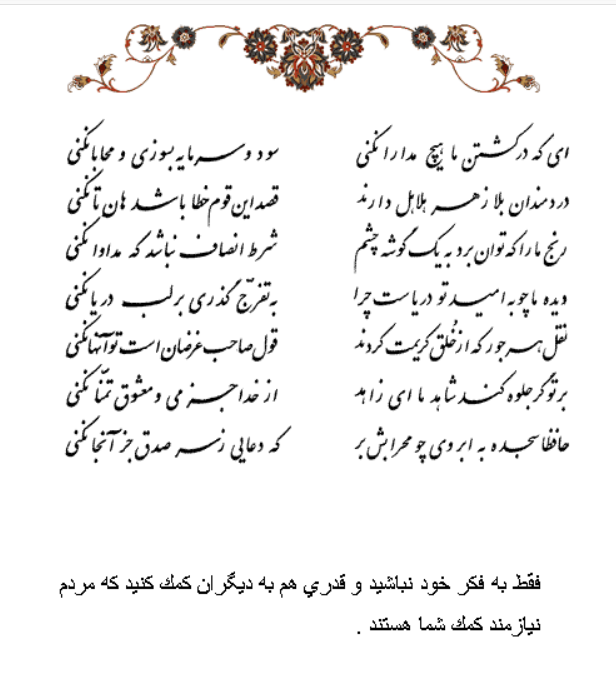 ای که در کشتن ما هیچ مدارا نکنی سود و سرمایه بسوزی و محابا نکنی
دردمندان بلا زهر هلاهل دارند قصد این قوم خطا باشد هان تا نکنی
رنج ما را که توان برد به یک گوشه چشم شرط انصاف نباشد که مداوا نکنی
دیده ما چو به امید تو دریاست چرا به تفرّج گذری بر لب دریا نکنی
نقل هر جور که از خُلق کریمت کردند قول صاحب غرضان است تو آنها نکنی
بر تو گر جلوه کند شاهد ما ای زاهد از خدا جز می و معشوق تمنّا نکنی
حافظا سجده به ابروی چو محرابش بر که دعایی ز سر صدق جز آنجا نکنی
فقط به فكر خود نباشيد و قدري هم به ديگران كمك كنيد كه مردم
نيازمند كمك شما هستند .